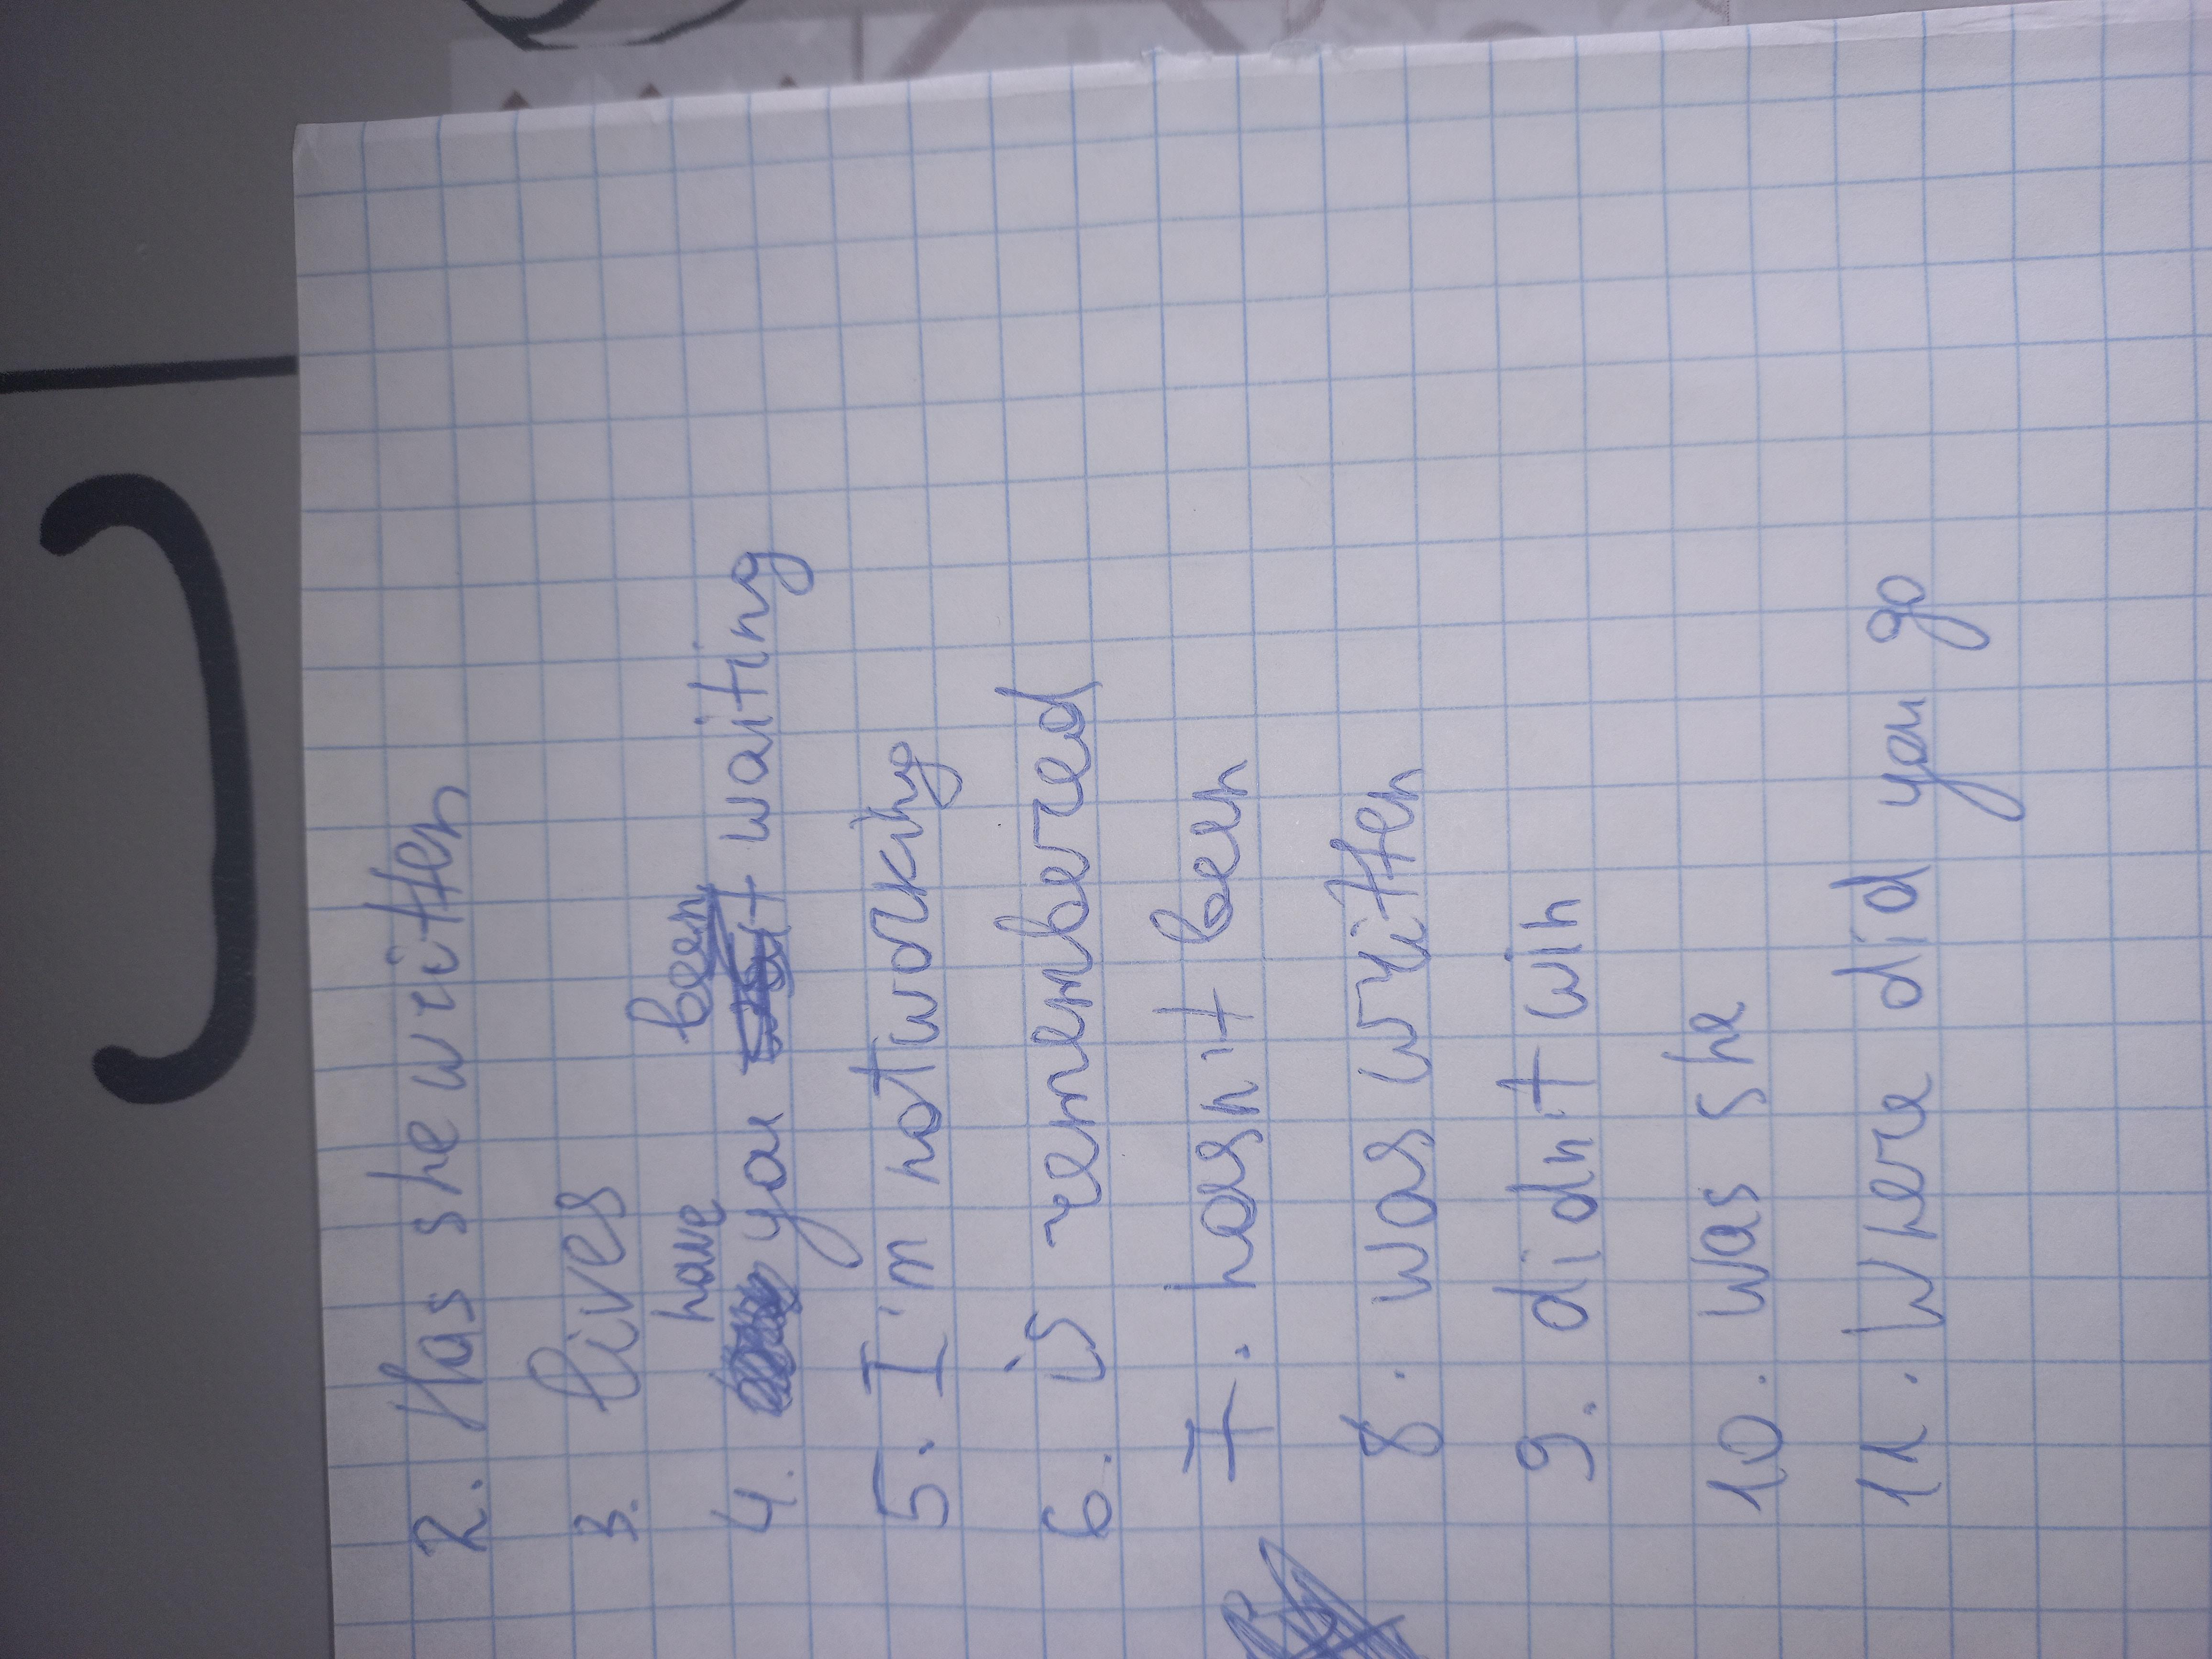 2. Has she written
3. lives
4. have you been waiting
5. I'm not working
6. is remembered
7. hasn't been
8. was written
9. didn't win
10. was she
11. Where did you go